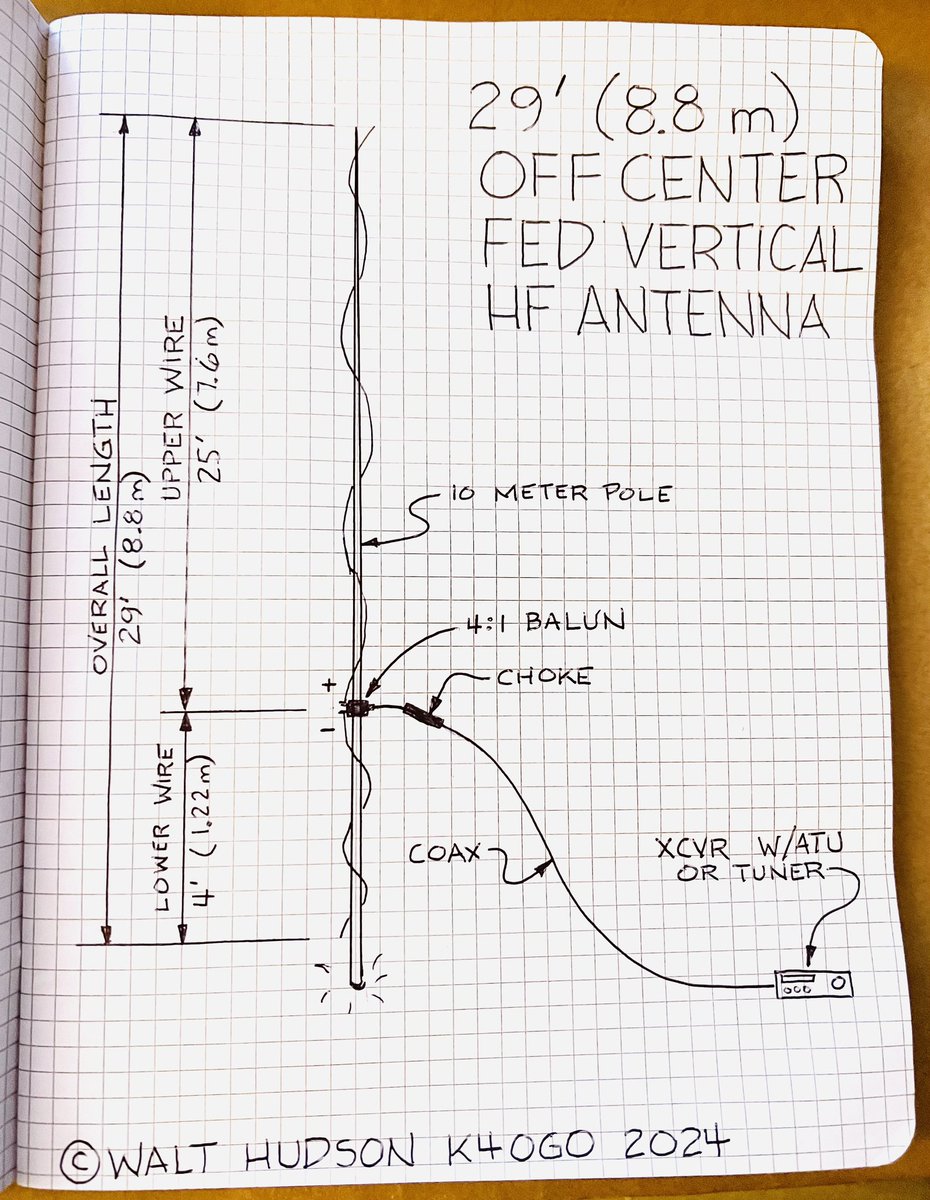 29' (8.8 m)
OFF CENTER
FED VERTICAL
HF ANTENNA
OVERALL LENGTH
29' (8.8m)
UPPER WIRE
25' (7.6m)
10 METER POLE
4:1 BALUN
+
-
CHOKE
LOWER WIRE
4' (1.22m)
COAX
XCVR W/ATU
OR TUNER
© WALT HUDSON K4OGO 2024